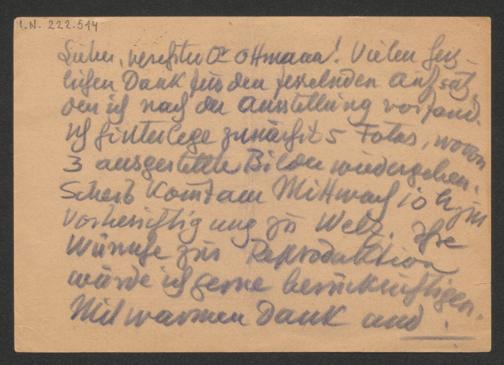 I.N. 222.514
Lieber, verehrter Dr Ottmann! Vielen herz-
lichen Dank für den fesselnden Aufsatz
den ich nach der Ausstellung vorfand.
Ich hinterlege zunächst 5 Fotos, wovon
3 ausgestellte Bilder wiedergeben.
Scheib kommt am Mittwoch 10 h zur
Vorbesichtigung zu Welz. Ihre
Wünsche zur Reproduktion
würde ich gerne berücksichtigen.
Mit warmen Dank und